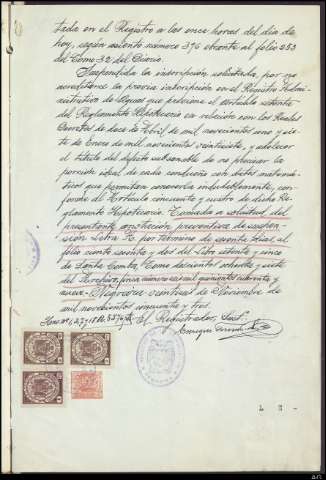 tada en el Registro a las once horas del dia de
hoy, según asiento número 376 obrante al folio 253
del Tomo 32 del Diario.
Suspendida la inscripción solicitada, por no
acreditarse la previa inscripción en el Registro Admi-
nistrativo de Aguas que previene el artículo setenta
del Reglamento Hipotecario en relación con los Reales
Decretos de doce de Abril de mil novecientos uno y sie-
te de Enero de mil novecientos veintisiete, y adolecer
el título del defecto subsanable de no precisar la
porción ideal de cada condueño con datos matemá-
ticos que permitan conocerla indudablemente, con-
forme al Artículo cincuenta y cuatro de dicho Re-
glamento Hipotecario. Tomada a solicitud del
presentante anotación preventiva de suspen-
sión Letra A. por término de sesenta días, al
folio ciento sesenta y dos del Libro setenta y cinco
de Santa Comba, Tomo doscientos ochenta y siete
del Archivo, finca número seis mil quinientos noventa y
nueve. Negreira veintiuno de Noviembre de
mil novecientos cincuenta y tres.
El Registrador,
Enrique
L E -